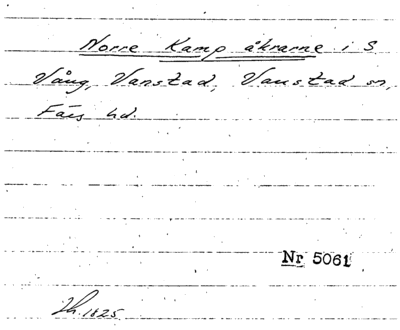 Norre Kamp åkrarne i S
Vång, Vanstad, Vanstad sn,
Färs hd.
Nr 5061
Lh. 1825